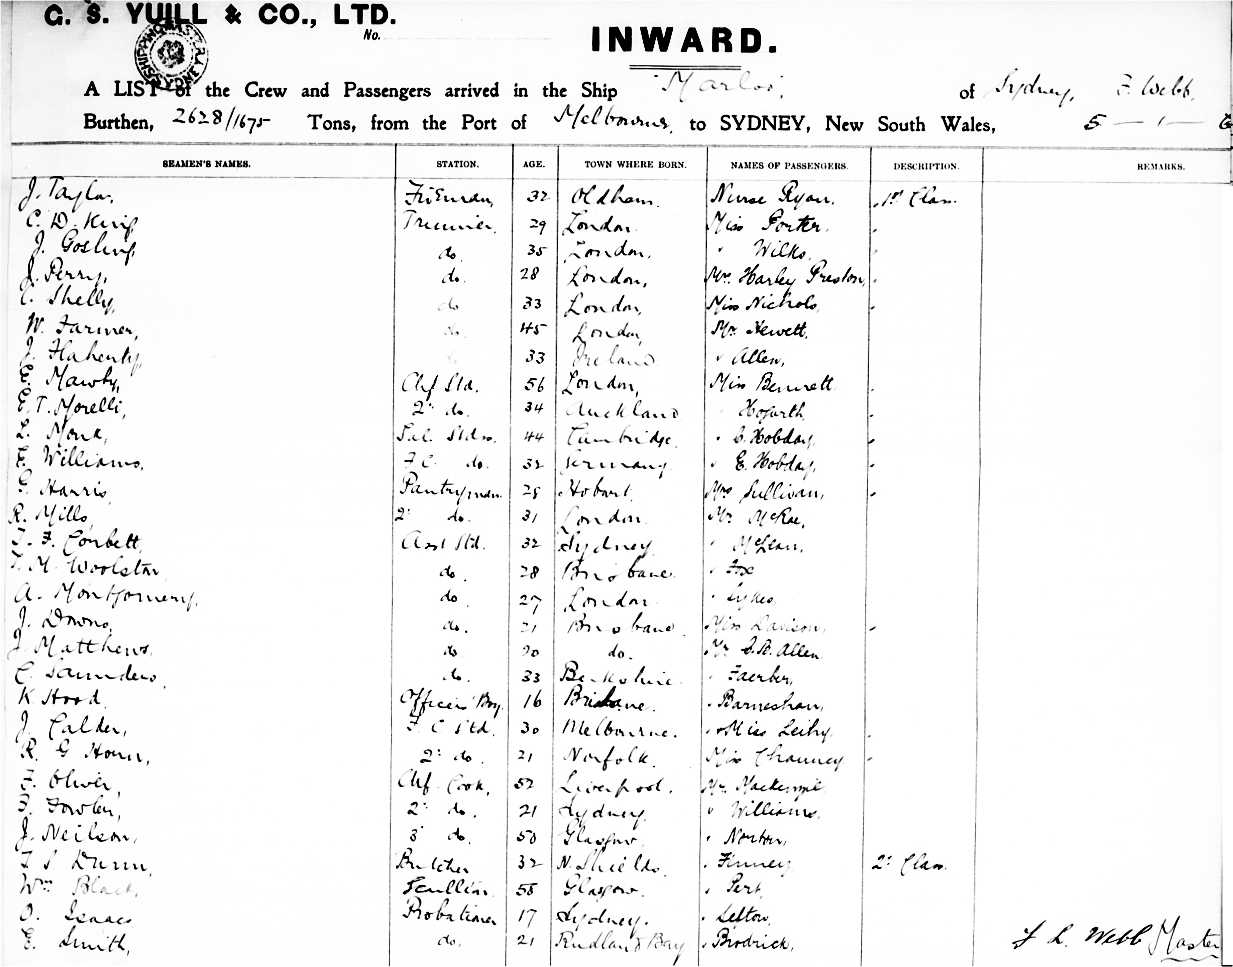 G. S. YUILL & CO., LTD.
No.
INWARD.
A LIST of the Crew and Passengers arrived in the Ship of Sydney, F. Webb.
Burthen, 2628/1675 Tons, from the Port of Melbourne, to SYDNEY, New South Wales, 5 - 1 -
SEAMEN'S NAMES. STATION. AGE. TOWN WHERE BORN. NAMES OF PASSENGERS. DESCRIPTION. REMARKS.
J. Taylor, Fireman, 32 Oldham. Nurse Ryan. 1st Class.
C. D. King Trimmer. 29 London. Miss Porter.
J. Gosling, do. 35 London. " Wilks.
J. Perry, do. 28 London, Mrs. Harley Preston,
C. Shelly, do 33 London, Miss Nichols,
W. Farmer, do. 45 London, Mr. Newett.
J. Flaherty, 33 Ireland " Allen,
E. Mawby, Chf Std. 56 London, Miss Bennett
E. T. Morelli, 2nd do. 34 Auckland Hogarth
Monk, Sal. Stdss. 44 Cambridge. " C. Hobday,
F. Williams, F. C. do. 32 Germany " E. Hobday,
G. Harris, Pantryman. 28 Hobart, Mrs Sullivan,
R. Mills, 2nd do. 31 London. Mr McRae,
F. Corbett, Asst Std. 32 Sydney " McLean,
M. Woolstar do. 28 Brisbane. " Fox
A. Montgomery, do. 27 London. " Sykes.
J. Downs, do. 21 Brisbane. Miss Davison,
J. Matthews. do 20 do. Mr. Allen
C. Saunders, do. 33 Berkshire. " Faerber,
K. Hood. Officers Boy. 16 Brisbane. "
J. Calder, F C Std. 30 Melbourne. " Miss Leihy.
R. G 2nd do. 21 Norfolk. Miss Chauncy
F. Oliver, Chf Cook, 52 Liverpool. Mr. Mackenzie
F. Fowler, 2nd do. 21 Sydney. " Williams.
J. Neilson, 3rd do. 50 Glasgow. " Norton,
Dunn, Butcher 32 N. Shields. " Finney 2nd Class.
Wm Black, Scullion. 58 Glasgow. " Pert,
O. Isaacs Probationer 17 Sydney. "
E. Smith, do. 21 Bay " Brodrick, F. L. Webb Master